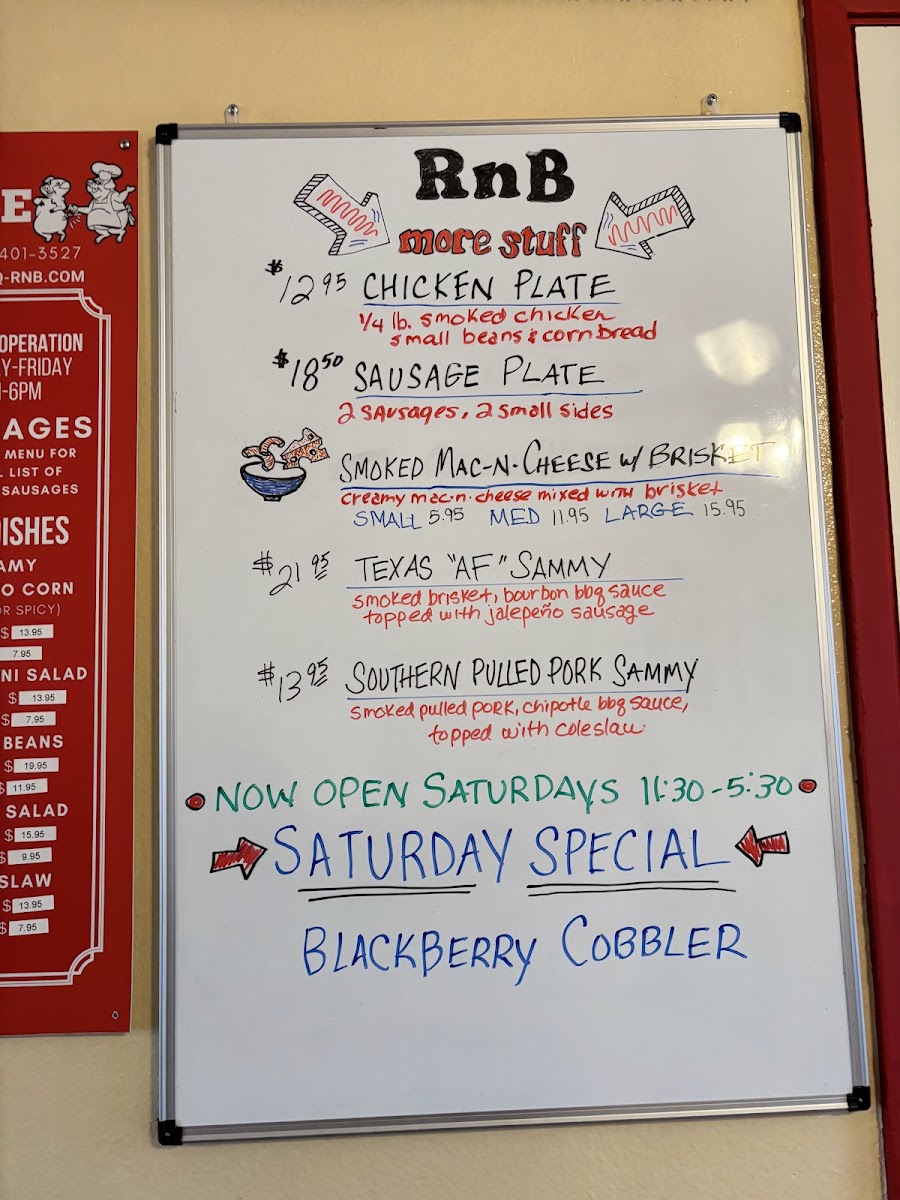 E
401-3527
Q-RNB.COM
OPERATION
Y-FRIDAY
-6PM
AGES
MENU FOR
LIST OF
SAUSAGES
DISHES
AMY
O CORN
OR SPICY)
$ 13.95
7.95
NI SALAD
$ 13.95
$ 7.95
BEANS
$ 19.95
$ 11.95
SALAD
$ 15.95
$ 9.95
SLAW
$ 13.95
$ 7.95
RnB
more stuff
$12.95 CHICKEN PLATE
1/4 lb. smoked chicken
small beans & cornbread
$18.50 SAUSAGE PLATE
2 sausages, 2 small sides
SMOKED MAC-N-CHEESE W/ BRISKET
creamy mac-n-cheese mixed with brisket
SMALL 5.95 MED 11.95 LARGE 15.95
$21.95 TEXAS "AF" SAMMY
smoked brisket, bourbon bbq sauce
topped with jalepeño sausage
$13.95 SOUTHERN PULLED PORK SAMMY
smoked pulled pork, chipotle bbq sauce,
topped with coleslaw
NOW OPEN SATURDAYS 11:30-5:30
SATURDAY SPECIAL
BLACKBERRY COBBLER